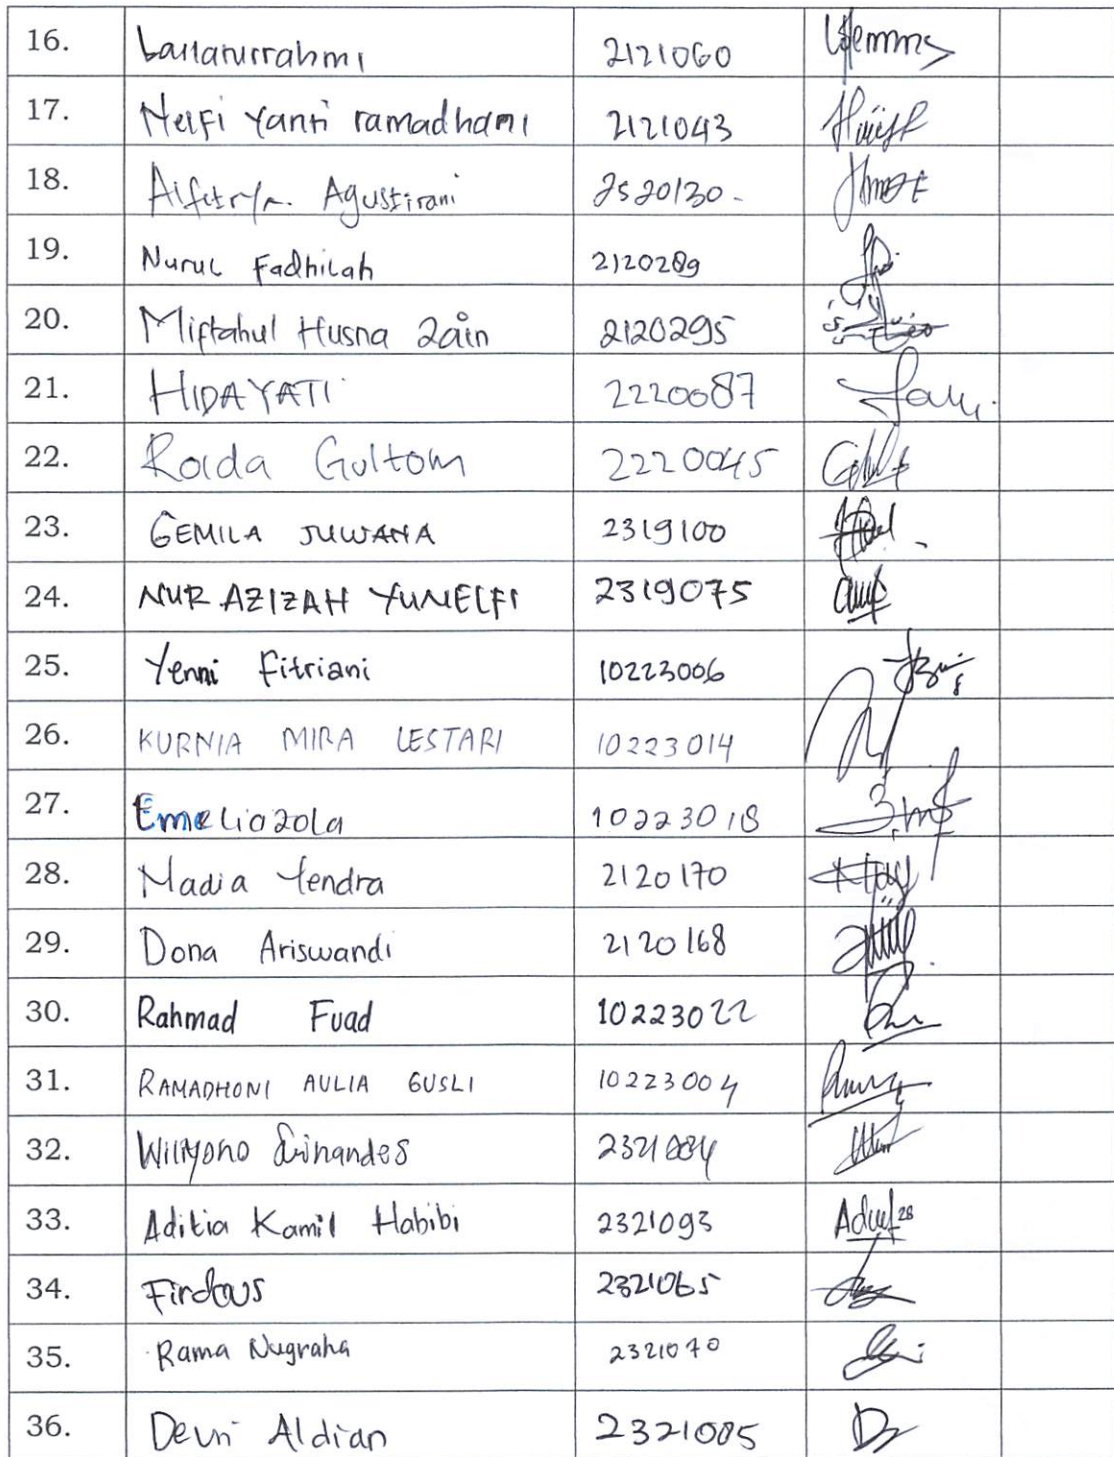 16. Lailaturrahmi 2121060
17. Nelfi Yanti ramadhani 2121043
18. Agustirani 2520130-
19. Nurul Fadhilah 2120289
20. Miftahul Husna Zain 2120295
21. HIDAYATI 2220087
22. Roida Gultom 2220045
23. GEMILA JUWANA 2319100
24. NUR AZIZAH YUNELFI 2319075
25. Yenni Fitriani 10223006
26. KURNIA MIRA LESTARI 10223014
27. Emeliazola 10223018
28. Nadia Yendra 2120170
29. Dona Ariswandi 2120168
30. Rahmad Fuad 10223022
31. RAMADHONI AULIA GUSLI 10223004
32. Wiliyono
33. Aditia Kamil Habibi 2321093
34. Firdaus 2321065
35. Rama Nugraha 2321070
36. Devri Aldian 2321085